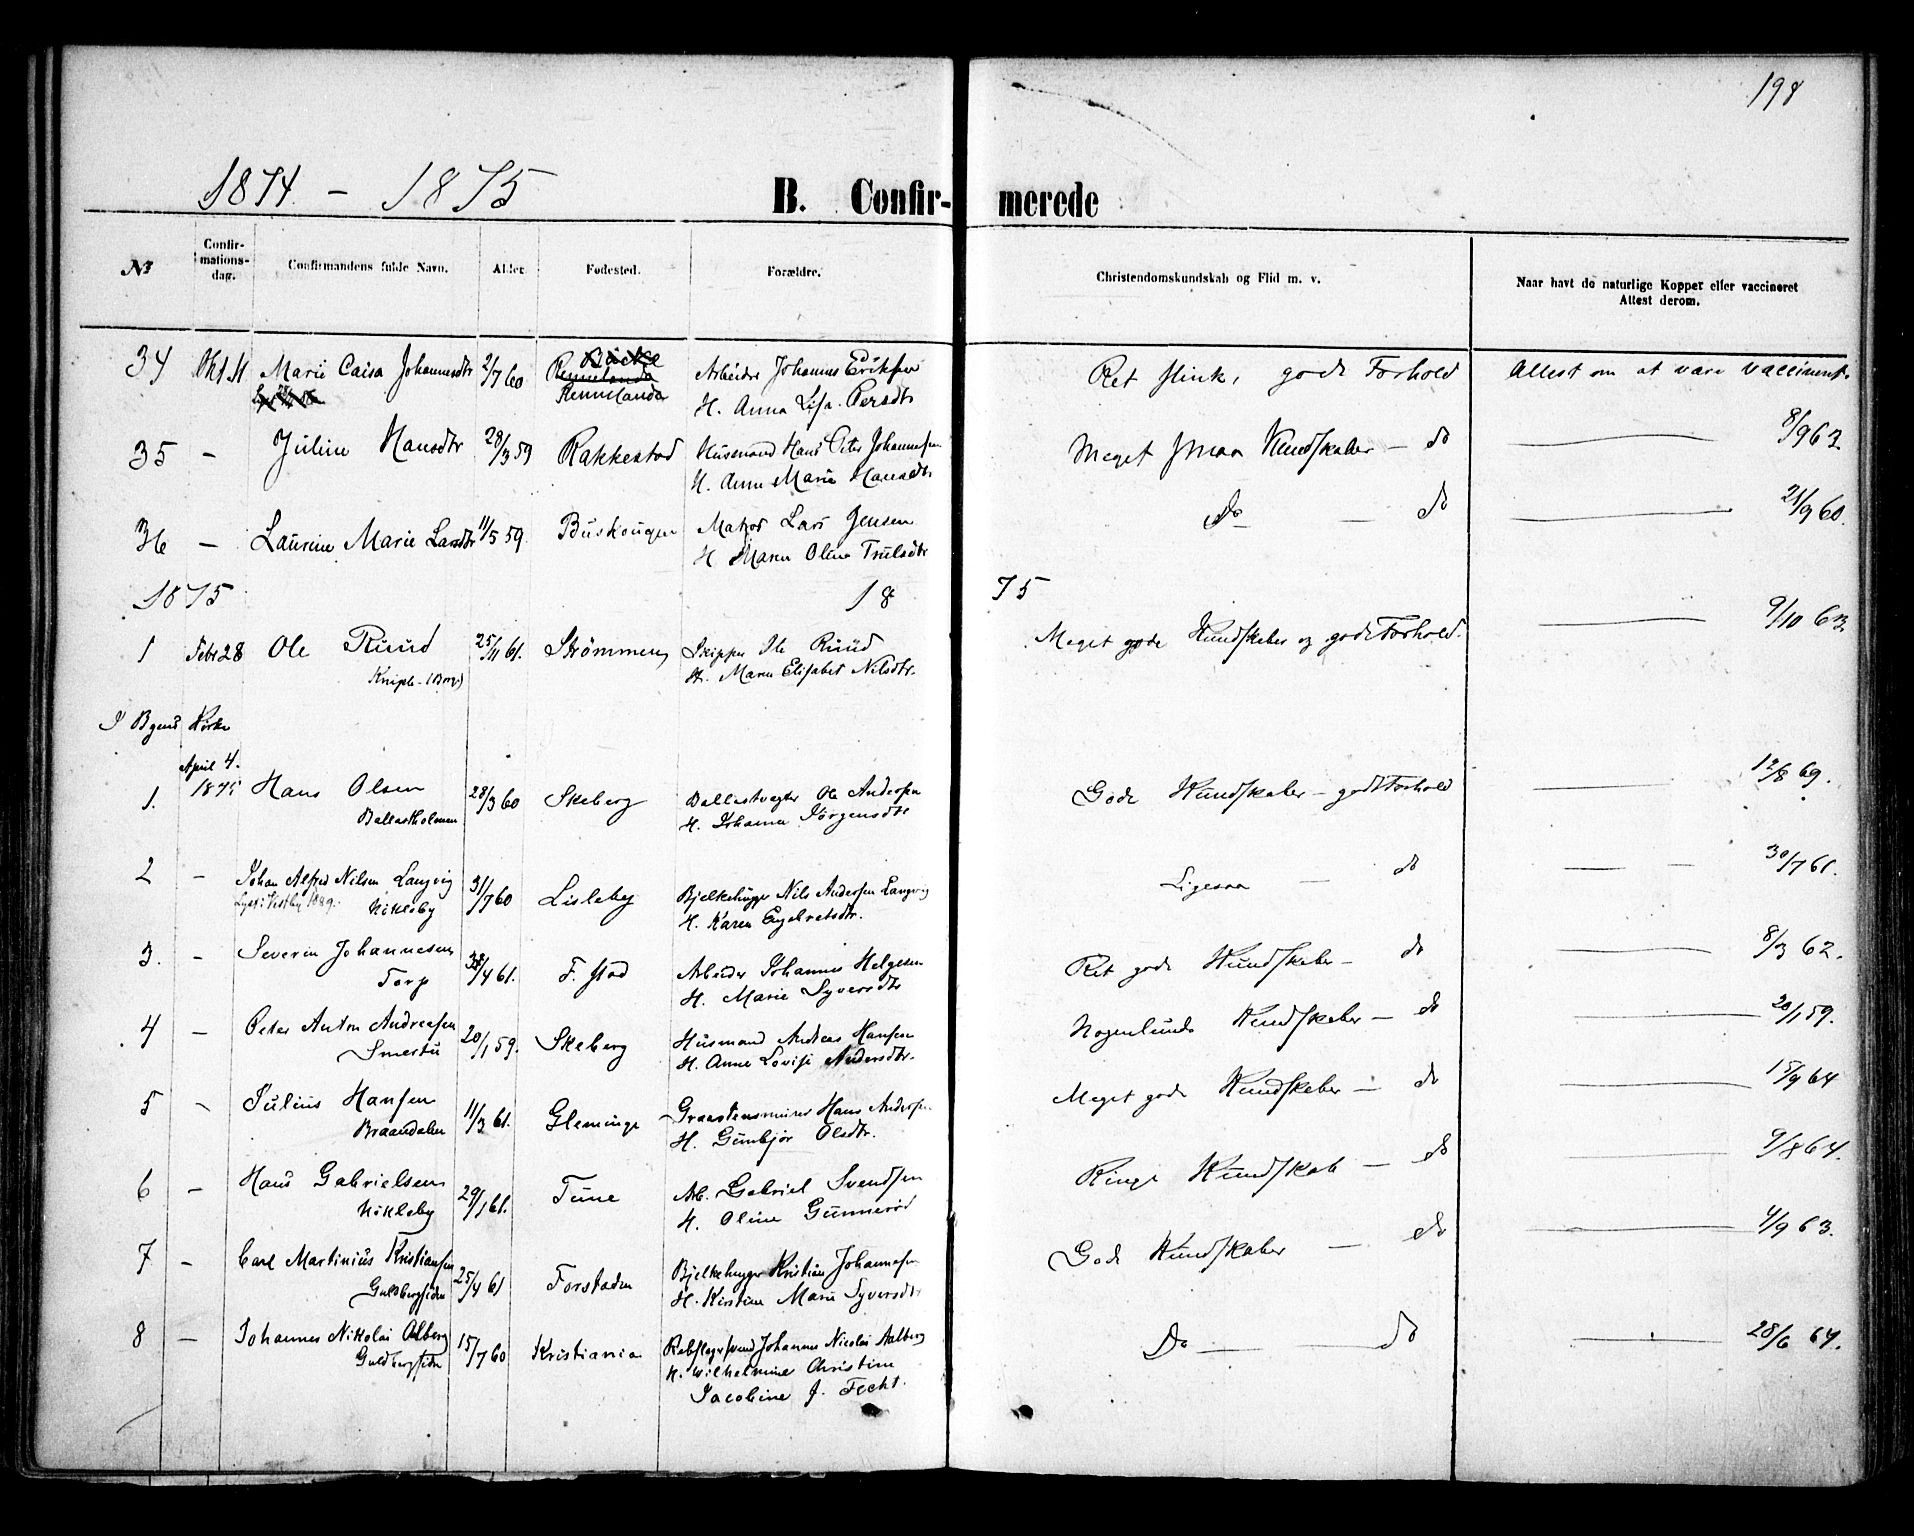 198
1874 - 1875
B. Confir- merede
No
Confir-
mations-
dag.
Confirmandens fulde Navn.
Alder.
Fødested.
Forældre.
Christendomskundskab og Flid m. v.
Naar havt de naturlige Kopper eller vaccineret
Attest derom.
34 Okt. Marie Caisa Johannesdtr 2/7 60 Rennelanda Arbeider Johannes Eriksen Ret flink, godt Forhold Attest om at være vaccineret.
H. Anna Lisa Persdtr
35 - Juline Hansdtr 28/3 59 Rakkestad Husmand Hans Peter Johannesen Meget smaa Kundskaber - do 8/9 63.
H. Anne Marie Hansdtr
36 - Laurine Marie Larsdtr 11/5 59 Buskougen Matros Lars Jensen Do - do 21/9 60.
H Maren Oline Trulsdtr
1875 18 75
1 Febr 28 Ole Ruud 25/11 61. Strømmen Skipper Ole Ruud Meget gode Kundskaber og godt Forhold. 9/10 63.
Kniple (Borge) H. Maren Elisabet Nilsdtr.
I Byens Kirke
April 4.
1. 1875 Hans Olsen 28/3 60 Skeberg Ballastvogter Ole Andersen Gode Kundskaber - godt Forhold 12/8 69.
Ballastholmen H. Johanne Jörgensdtr
2 - Johan Alfred Nilsen Langvig 31/7 60 Lisleby Bjelkehugger Nils Andersen Langvig Ligesaa - do 30/7 61.
Nökleby H. Karen Engebretsdtr.
3. - Severin Johannesen 4 61. F. stad Arbeider Johannes Helgesen Ret gode Kundskaber - do 8/3 62.
Torp H. Marie Syversdtr
4 - Peter Anton Andreasen 20/1 59. Skeberg Husmand Andreas Hansen Nogenlunde Kundskaber - do 20/1 59.
Smertu H. Anne Lovise Andersdtr.
5 - Julius Hansen 11/3 61. Gleminge Graastensmurer Hans Andersen Meget gode Kundskaber - do 15/9 64
Braendalen H. Gunbjör Olsdtr.
6 - Hans Gabrielsen 29/1 61. Tune Arb. Gabriel Svendsen Ringe Kundskab - do 9/8 64.
Nökleby H. Oline Gunneröd
7 - Carl Martinius Kristiansen 25/4 61 Forstaden Bjelkehugger Kristian Johannesen Gode Kundskaber - do 4/9 63.
Guldbergsiden H. Kirstine Marie Syversdtr
8 - Johannes Nikolai Alberg 15/7 60 Kristiania Rebslagersvend Johannes Nicolai Aalberg Do - do 28/6 64.
Guldbergsiden H. Wilhelmine Christine
Jacobine J. Fecht.